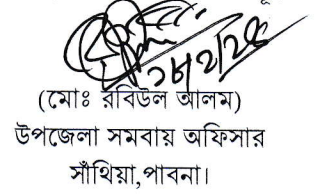 ১৮/২/২৫
(মোঃ রবিউল আলম)
উপজেলা সমবায় অফিসার
সাঁথিয়া,পাবনা।